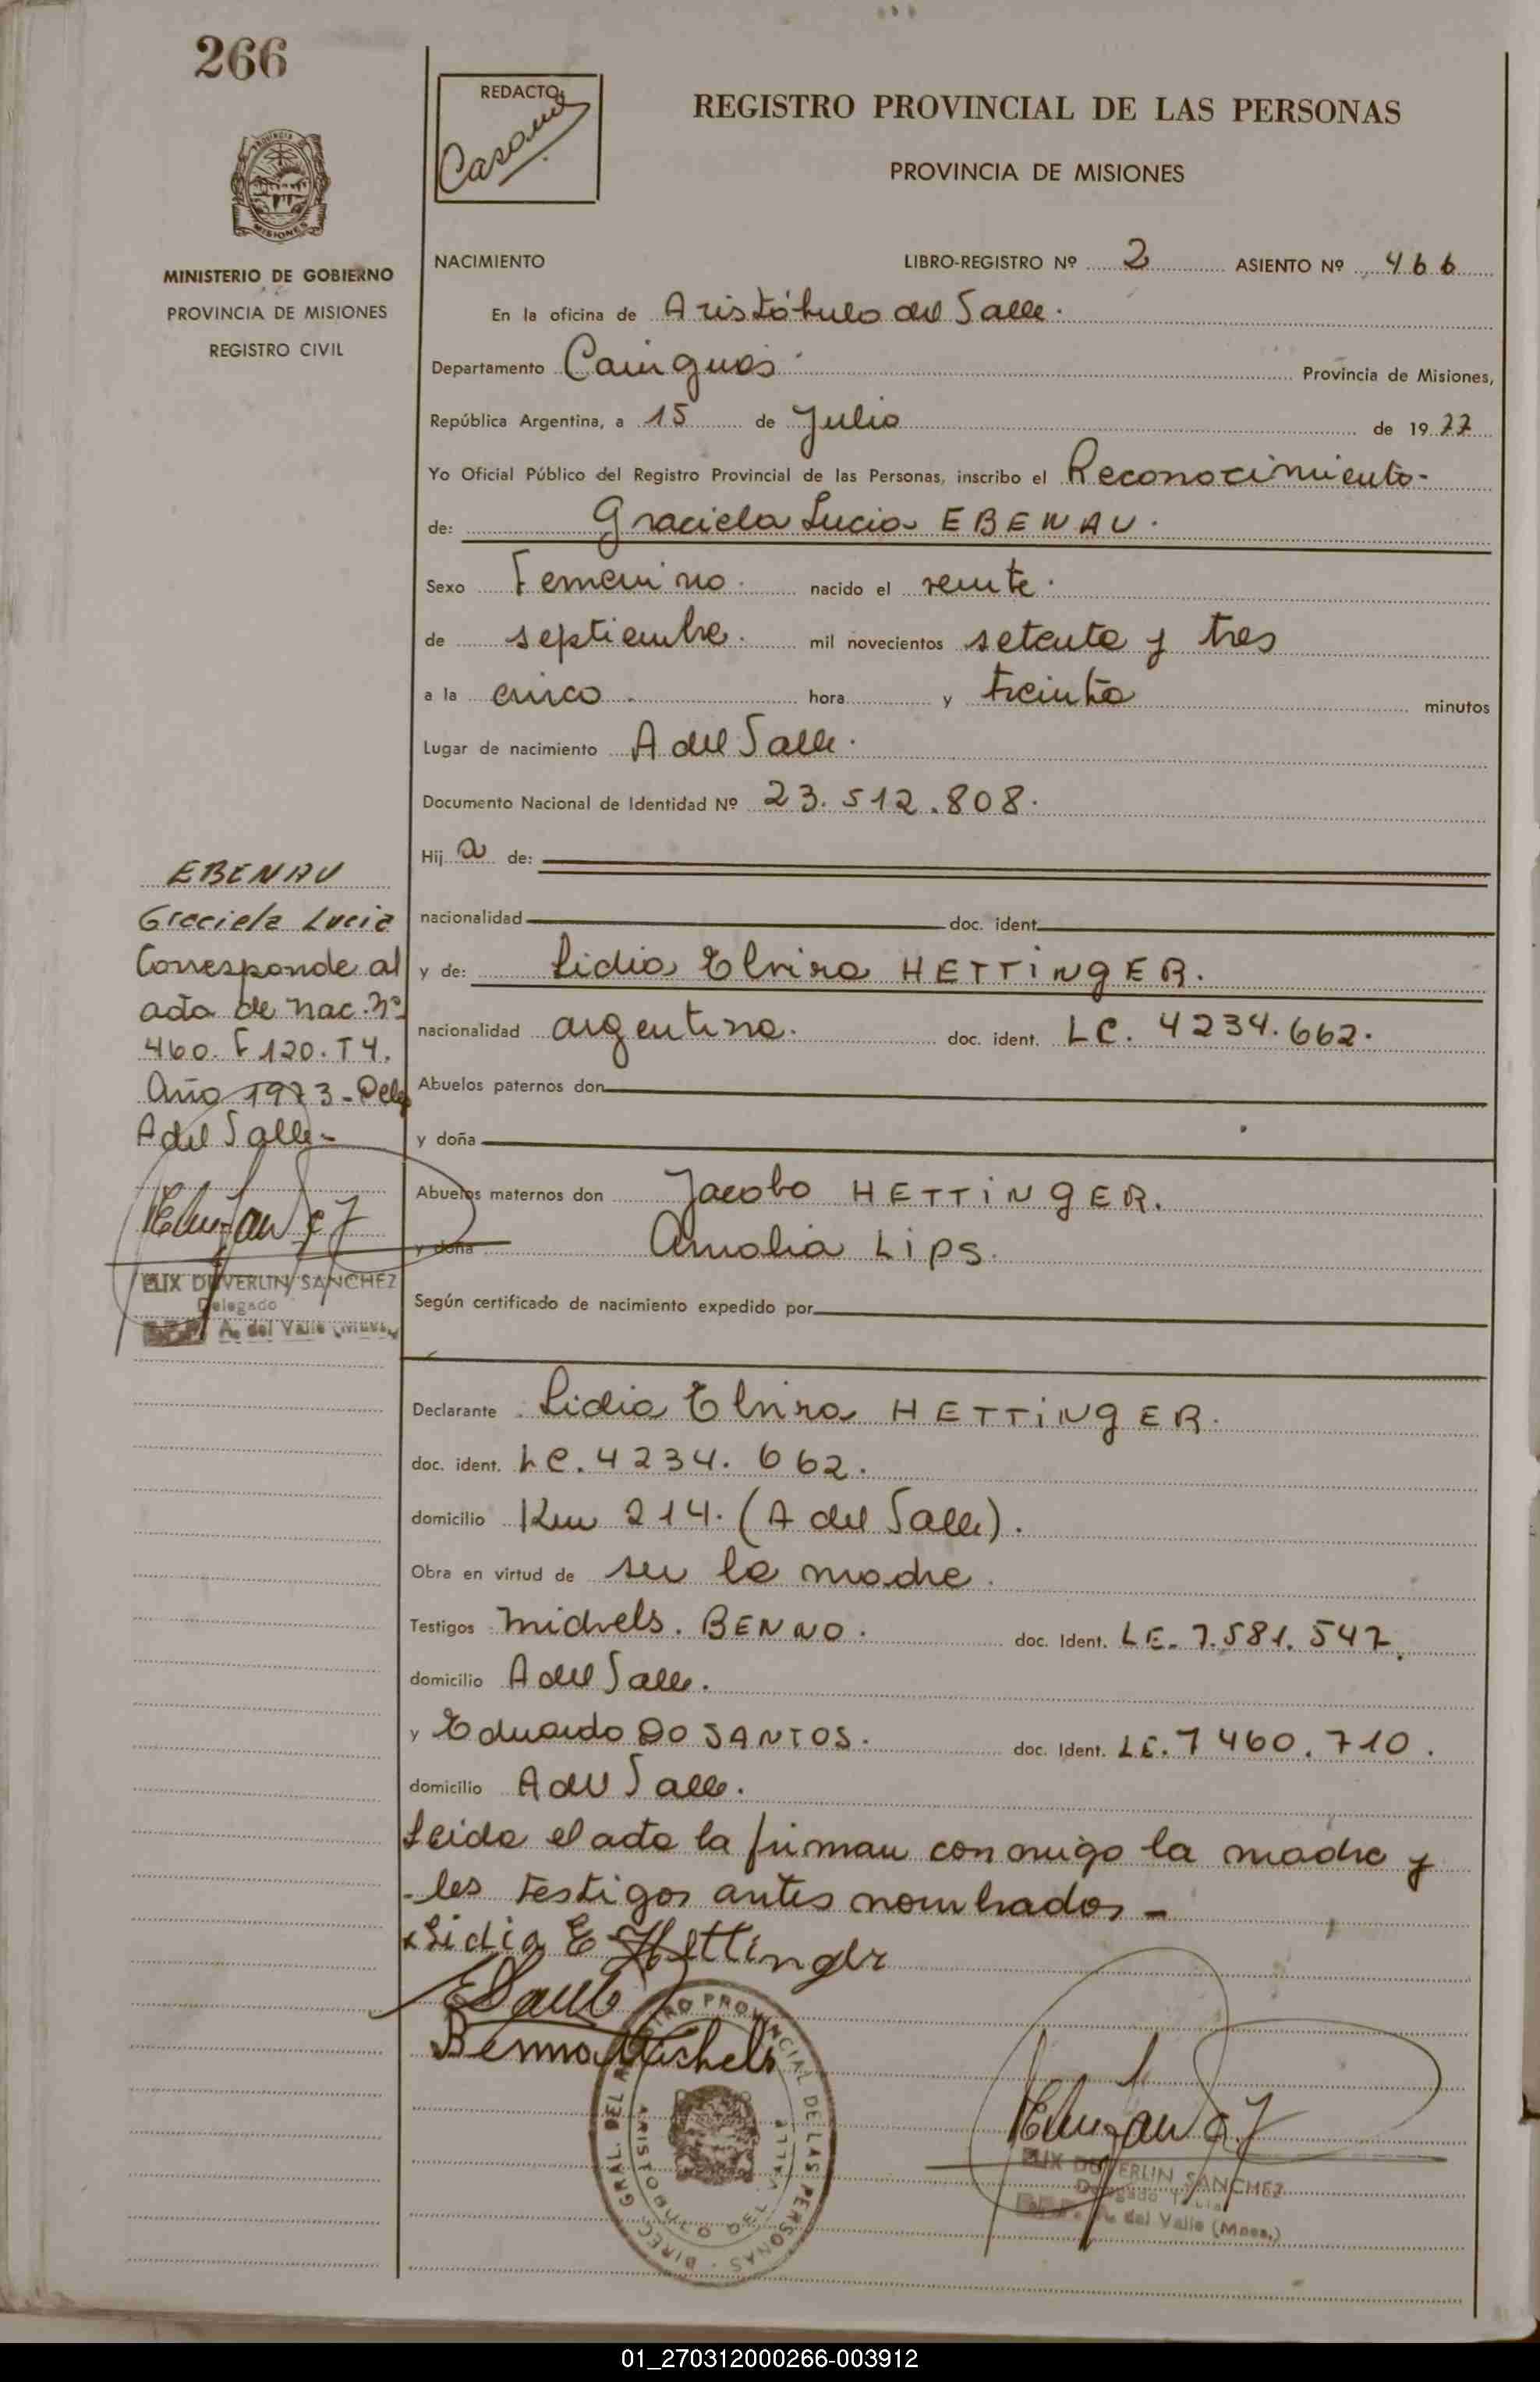 266
REDACTO
REGISTRO PROVINCIAL DE LAS PERSONAS
PROVINCIA DE MISIONES
MISIONES
MINISTERIO DE GOBIERNO
PROVINCIA DE MISIONES
REGISTRO CIVIL
NACIMIENTO LIBRO-REGISTRO Nº 2 ASIENTO Nº 466
En la oficina de Aristóbulo del Valle.
Departamento Cainguás Provincia de Misiones,
República Argentina, a 15 de Julio de 1977
Yo Oficial Público del Registro Provincial de las Personas, inscribo el Reconocimiento-
de: Graciela Lucia EBENAU.
Sexo Femenino. nacido el veinte.
de septiembre. mil novecientos setenta y tres
a la cinco hora y treinta minutos
Lugar de nacimiento A del Valle.
Documento Nacional de Identidad Nº 23.512.808.
Hij a de:
nacionalidad doc. ident.
y de: Lidia Elvira HETTINGER.
nacionalidad argentina. doc. ident. LC. 4234.662.
Abuelos paternos don
y doña
Abuelos maternos don Jacobo HETTINGER.
y doña Amalia Lips.
Según certificado de nacimiento expedido por
EBENAU
Graciela Lucia
Corresponde al
acta de nac. Nº
460. F 120. T 4.
Año 1973-Deleg
A del Valle-
ELIX DUVERLIN SANCHEZ
Delegado
A. del Valle
Declarante Lidia Elvira HETTINGER.
doc. ident. LC. 4234. 662.
domicilio Km 214. (A del Valle).
Obra en virtud de ser la madre.
Testigos Michels. BENNO. doc. Ident. LE. 7.581.547.
domicilio A del Valle.
y Eduardo DO SANTOS. doc. Ident. LE. 7460.710.
domicilio A del Valle.
Leida el acta la firman conmigo la madre y
los testigos antes nombrados-
Lidia E Hettinger
Benno Michels
DIREC. GRAL. DEL REGISTRO PROVINCIAL DE LAS PERSONAS
ARISTOBULO DEL VALLE
ELIX DUVERLIN SANCHEZ
Delegado Titular
A. del Valle (Mnes.)
01_270312000266-003912